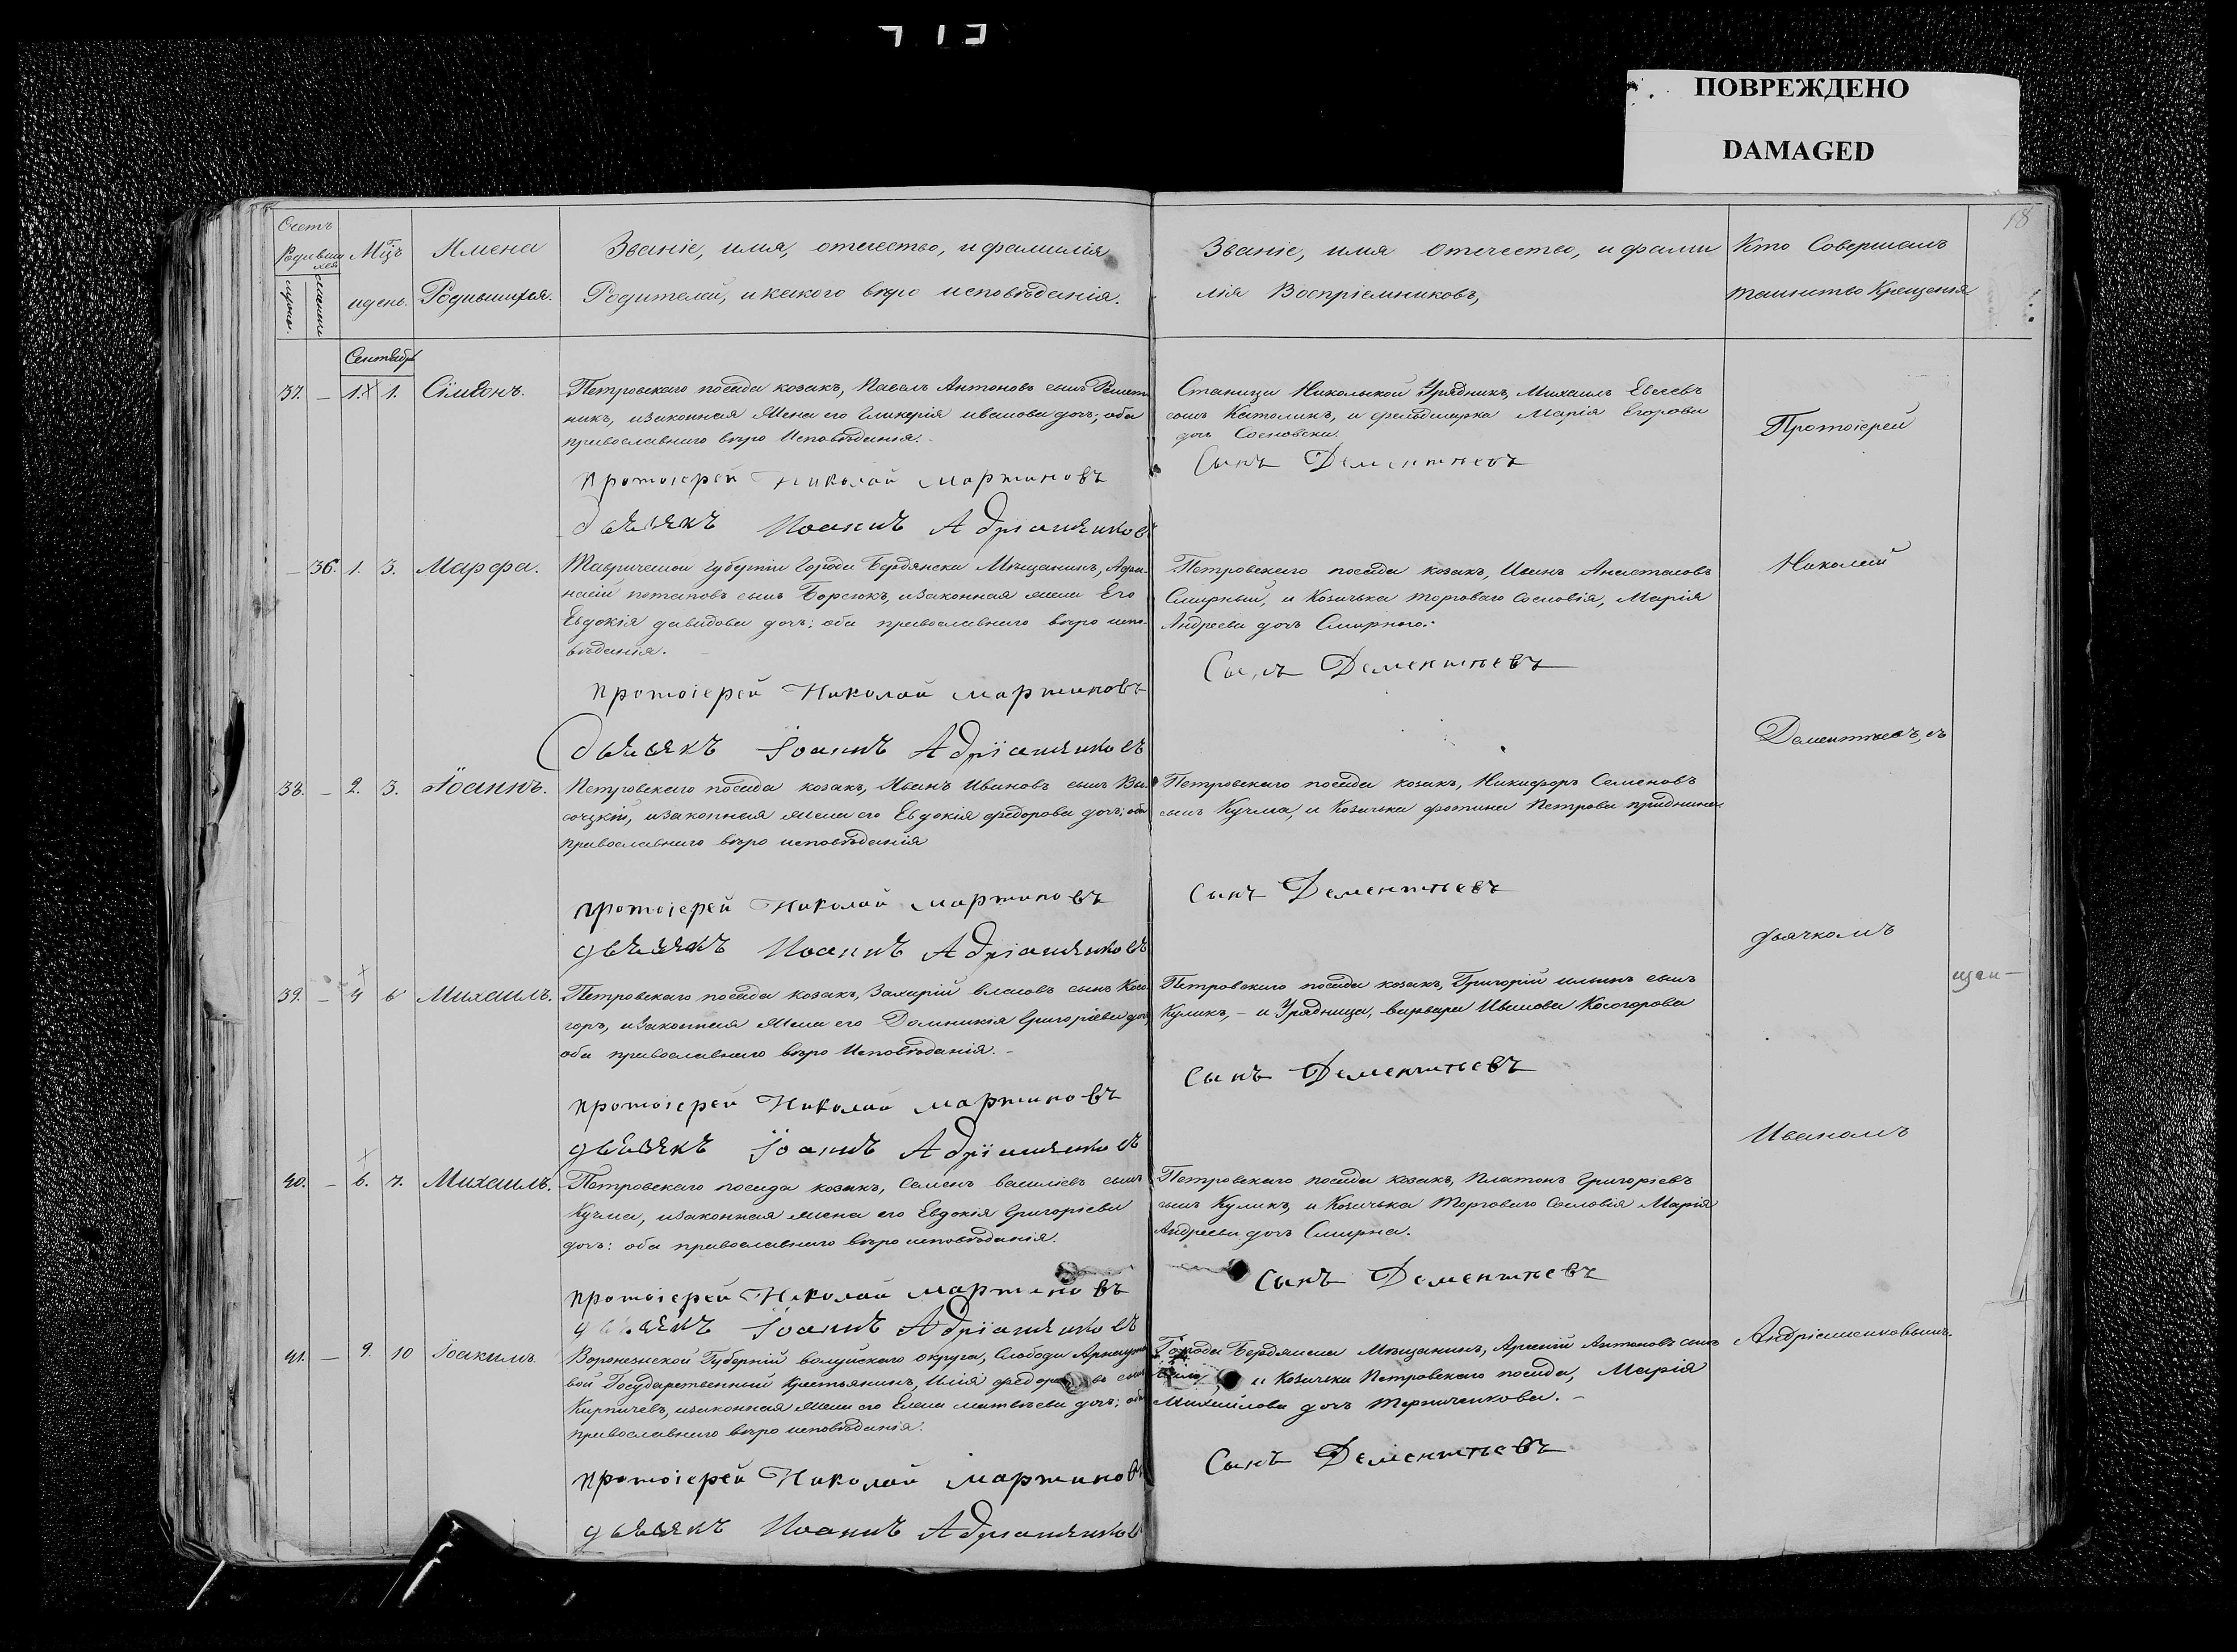 ПОВРЕЖДЕНО
DAMAGED
18
Счетъ Родившихся
Мцъ и день.
Имена Родившихся.
Званіе, имя, отчество, и фамилія
Родителей, и какого вѣро исповѣданія.
Званіе, имя отчество, и фами
лія Воспріемниковъ,
Кто Совершалъ
таинство Крещенія
Сентябрь
37. – 1. 1. Сімеонъ.
Петровскаго посада козакъ, Павелъ Антоновъ сынъ
никъ, и законная жена его Гликерія иванова дочь; оба
православнаго вѣро Исповѣданія.
протоіерей Николай Мартиновъ
дьячокъ Иоаннъ Адріаненковъ
Станици Никольской Урядникъ, Михаилъ Евсеевъ
сынъ Католикъ, и Марія Егорова
дочь
Сынъ Дементьевъ
Протоіерей
– 36. 1. 3. Марфа.
Таврической губерніи Города Бердянска Мѣщанинъ, Афа-
насій потаповъ сынъ Борсюкъ, и законная жена Его
Евдокія давидова дочь; оба православнаго вѣро испо-
вѣданія.
протоіерей Николай мартиновъ
дьячокъ Іоаннъ Адріаненковъ
Петровскаго посада козакъ, Иванъ Анастасовъ
Смирный, и Козачька торговаго Сословія, Марія
Андреева дочь Смирного.
Сынъ Дементьевъ
Николай
Дементьевъ, съ
38. – 2. 3. Іоаннъ.
Петровскаго посада козакъ, Иванъ Ивановъ сынъ Вы-
соцкій, и законная жена его Евдокія федорова дочь; оба
православнаго вѣро исповѣданія
протоіерей Николай мартиновъ
дьячокъ Иоаннъ Адріаненковъ
Петровскаго посада козакъ, Никифоръ Семеновъ
сынъ Кучма, и Козачька фотина Петрова
Сынъ Дементьевъ
дьячкомъ
39. – 4 6 Михаилъ.
Петровскаго посада козакъ, Захарій власовъ сынъ Косо
горъ, и законная жена его Домникія Григоріева дочь
оба православнаго вѣро Исповѣданія. –
протоіерей Николай мартиновъ
дьячокъ Іоаннъ Адріаненковъ
Петровскаго посада козакъ, Григорій ильинъ сынъ
Куликъ, – и Урядница, варвара Иванова Косогорова
Сынъ Дементьевъ
Иваномъ
40. – 6. 7. Михаилъ.
Петровскаго посада козакъ, Семенъ василіевъ сынъ
Кучма, и законная жена его Евдокія Григоріева
дочь: оба православнаго вѣро исповѣданія.
протоіерей Николай мартиновъ
дьячокъ Іоаннъ Адріаненковъ
Петровскаго посада козакъ, Платонъ Григоріевъ
сынъ Куликъ, и Козачька Торговаго Сословія Марія
Андреева дочь Смирна.
Сынъ Дементьевъ
41. – 9. 10 Іоакимъ.
Воронежской Губерніи волуйскаго округа, Слободи
вой Государственный Крестьянинъ, Илія сынъ
Кирпичевъ, и законная жена его Елена матвѣева дочь; оба
православнаго вѣро исповѣданія.
протоіерей Николай мартиновъ
дьячокъ Иоаннъ Адріаненковъ
Города Бердянска Мѣщанинъ, Арсеній Антоновъ сынъ
и Козачька Петровскаго посада, Марія
Михайлова дочь Терниченкова. –
Сынъ Дементьевъ
Андріаненковымъ.